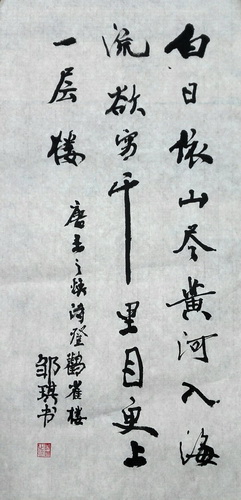 白日依山尽黄河入海
流欲穷千里目更上
一层楼
唐王之涣诗登鹳雀楼
邹琪书